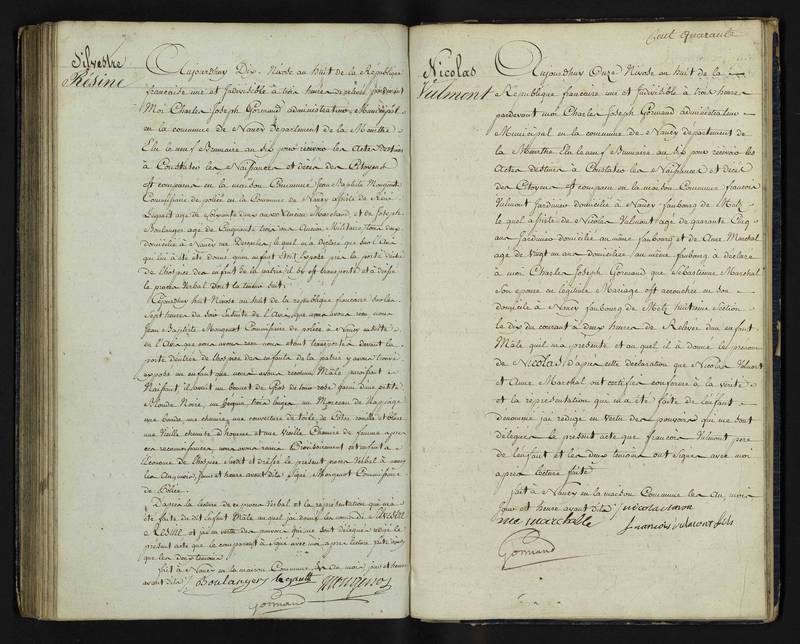 Silvestre
Résine
Aujourdhuy Dix Nivose au huit de la République
francaise une et Indivisible à trois heures de relevé pardevant
Moi Charles Joseph Gormand administrateur Municipal
en la commune de Nancy département de la Meurthe
Elu le neuf Brumaire au six pour recevoir les Actes destinés
à Constater les Naissances et décès des Citoyens
est comparu en la maison Commune Jean Baptiste Mougenot
Commissaire de police en la Commune de Nancy assisté de René
age de soixante deux ans ancien Marchand, et de Joseph
Boulanger age de Cinquante trois ans Ancien Militaire, tous deux
domiciliés à Nancy lequel m'a déclaré que sur l'avis
qui lui a été donné quun enfant étoit exposé près la porte d'entrée
de l'hospice des enfans de la patrie, il s'y est transporté et a dressé
le procès Verbal dont la teneur suit.
Cejourdhuy huit Nivose au huit de la republique francaise sur les
Sept heures du soir ensuite de l'avis que nous avons reçu nous
Jean Baptiste Mougenot Commissaire de police à Nancy
en l'avis que nous avons reçu nous étant transporté devant la
porte d'entrée de l'hospice des enfans de la patrie y avons trouvé
exposé un enfant que nous avons reconnu Mâle paroissant
Naissant, il avoit un bonnet de Gros de tour rose garni d'une petite
Blonde Noire, un béguin, trois langes un Morceau de
une bande, une chemise, une couverture de toile de Coton rouille et bleue
une Vieille chemise d'homme et une Vieille Chemise de femme apres
ces reconnoissances, nous avons remis Provisoirement cet enfant à
l'économe de l'hospice susdit et dréssé le présent procès Verbal à
les an, mois, jour et heure avant dits Signé Mougenot Commissaire
de Police.
D'après la lecture de ce procès Verbal et la représentation qui m'a
été faite dudit Enfant Mâle auquel j'ai donné les noms de Silvestre
Résine et j'ai en vertu des pouvoirs qui me sont délégués rédigé le
présent acte que le comparant a signé avec moi après lecture faite
que les deux temoins
fait à Nancy en la maison Commune les an mois jour et heure
avant dits Boulanger Mougenot
Gormand
Cent Quarante
Nicolas
Valmont
Aujourdhuy Onze Nivose au huit de la
République francaise une et Indivisible à trois heures
pardevant moi Charles Joseph Gormand administrateur
Municipal en la commune de Nancy département de
la Meurthe Elu le neuf Brumaire au Six pour recevoir les
Actes destinés à Constater les Naissances et décès
des Citoyens est comparu en la maison Commune francois
Valmont Jardinier domicilié à Nancy faubourg de Metz
lequel assisté de Nicolas Valmont agé de quarante Cinq
ans Jardinier domicilié au même faubourg et de Anne Marchal
agé de vingt un ans domiciliée au même faubourg a déclaré
à moi Charles Joseph Gormand que Sébastienne Marchal
Son epouse en légitime Mariage est accouchée en son
domicile à Nancy faubourg de Metz huitième section
le dix du courant à deux heures de Relevée d'un enfant
Mâle quil m'a présenté et auquel il a donné les prenoms
de Nicolas, d'après cette déclaration que Nicolas Valmont
et Anne Marchal ont certifiés conforme à la vérité
et la représentation qui m'a été faite de l'enfant
denommé j'ai rédigé en vertu des pouvoirs qui me sont
délégués le présent acte que francois Valmont père
de l'enfant et les deux temoins ont signé avec moi
après lecture faite
fait à Nancy en la maison Commune les an, mois
jour et heure avant dits
francois valmont fils
Gormand